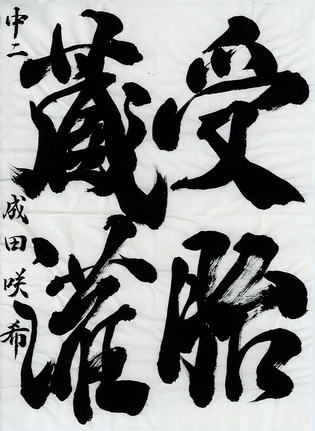 受胎
蔵灌
中二 成田咲希